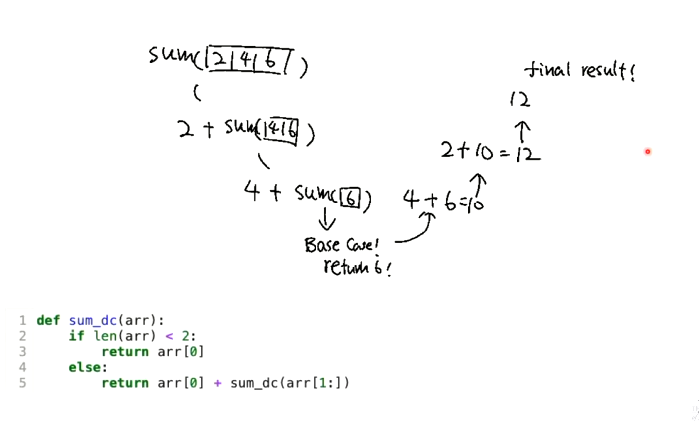 sum([2|4|6])
2 + sum([4|6])
4 + sum([6])
Base Case!
return 6!
4 + 6 = 10
2 + 10 = 12
12
final result!
1 def sum_dc(arr):
2     if len(arr) < 2:
3         return arr[0]
4     else:
5         return arr[0] + sum_dc(arr[1:])